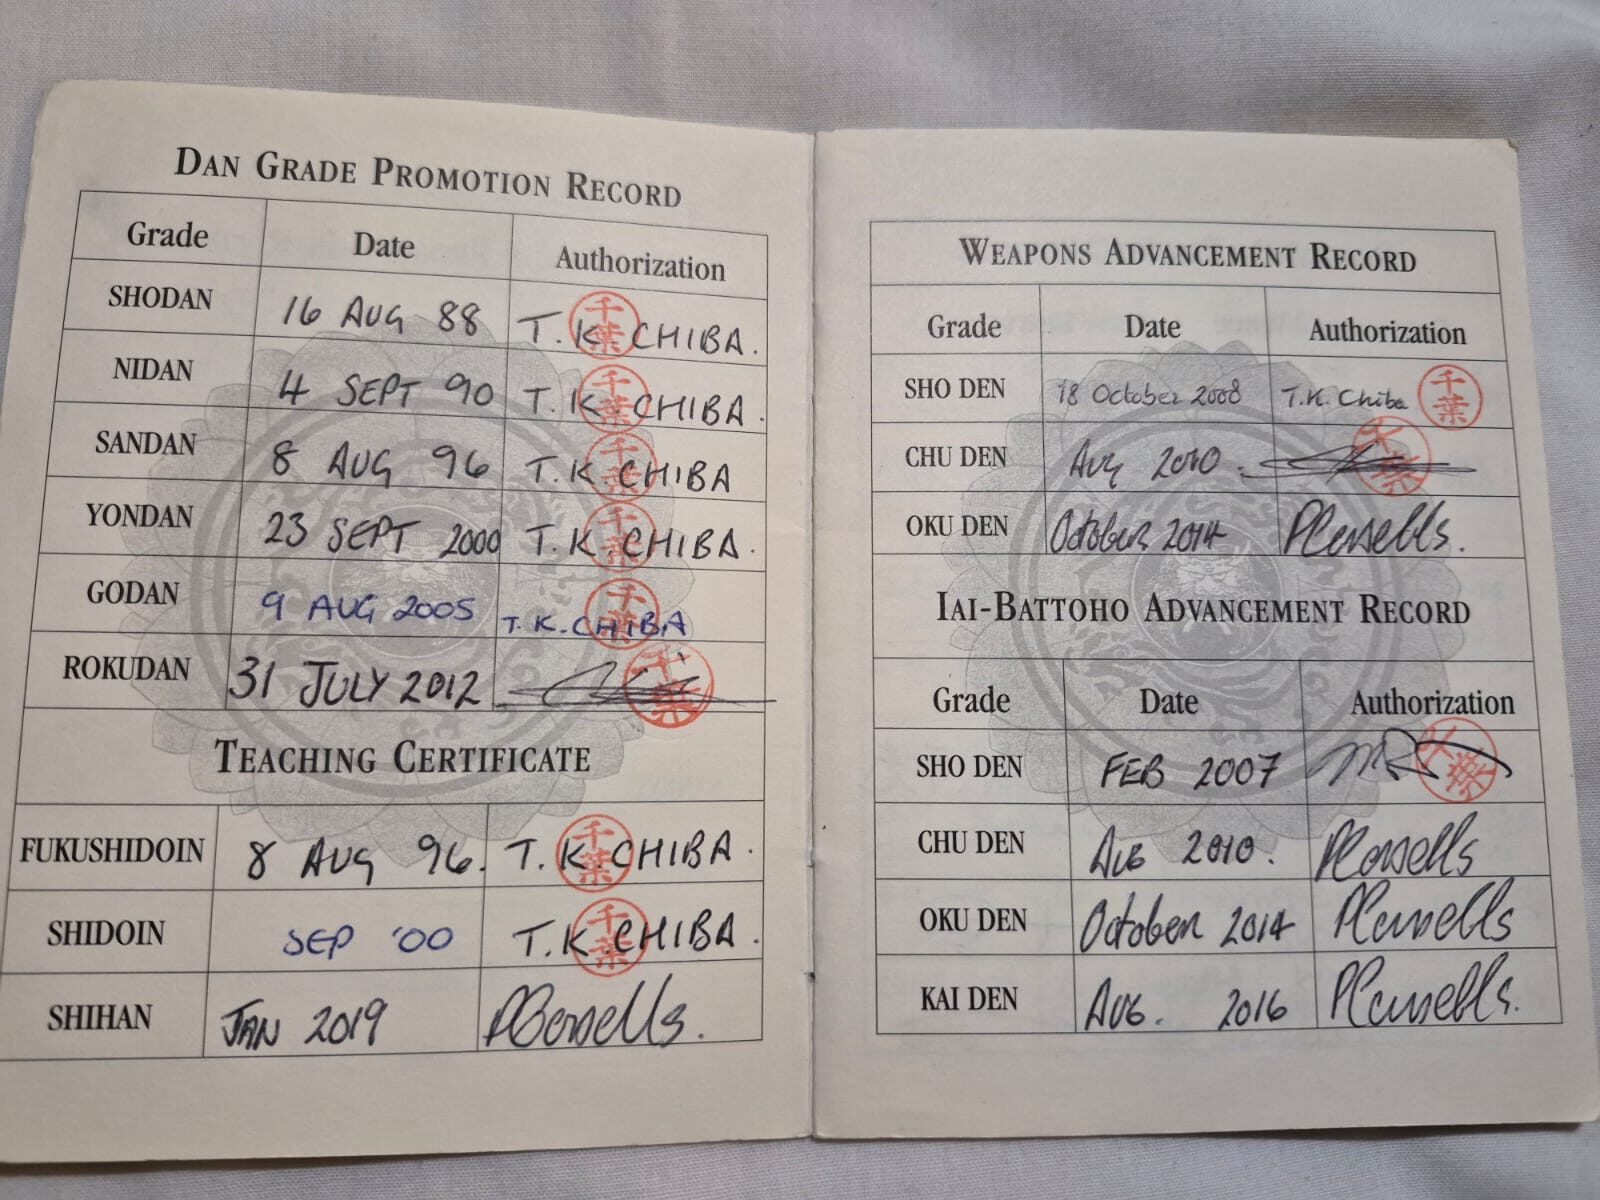 DAN GRADE PROMOTION RECORD
Grade Date Authorization
SHODAN 16 AUG 88 T.K. CHIBA. 千葉
NIDAN 4 SEPT 90 T.K. CHIBA. 千葉
SANDAN 8 AUG 96 T.K. CHIBA 千葉
YONDAN 23 SEPT 2000 T.K. CHIBA. 千葉
GODAN 9 AUG 2005 T.K. CHIBA 千葉
ROKUDAN 31 JULY 2012 千葉
TEACHING CERTIFICATE
FUKUSHIDOIN 8 AUG 96. T.K. CHIBA. 千葉
SHIDOIN SEP '00 T.K. CHIBA. 千葉
SHIHAN JAN 2019
WEAPONS ADVANCEMENT RECORD
Grade Date Authorization
SHO DEN 18 October 2008 T.K. Chiba 千葉
CHU DEN Aug 2010. 千葉
OKU DEN October 2014
IAI-BATTOHO ADVANCEMENT RECORD
Grade Date Authorization
SHO DEN FEB 2007 千葉
CHU DEN AUG 2010.
OKU DEN October 2014
KAI DEN AUG. 2016